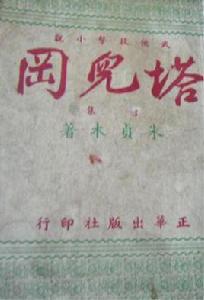 武俠技擊小說
塔兒岡
集
朱貞木著
正華出版社印行